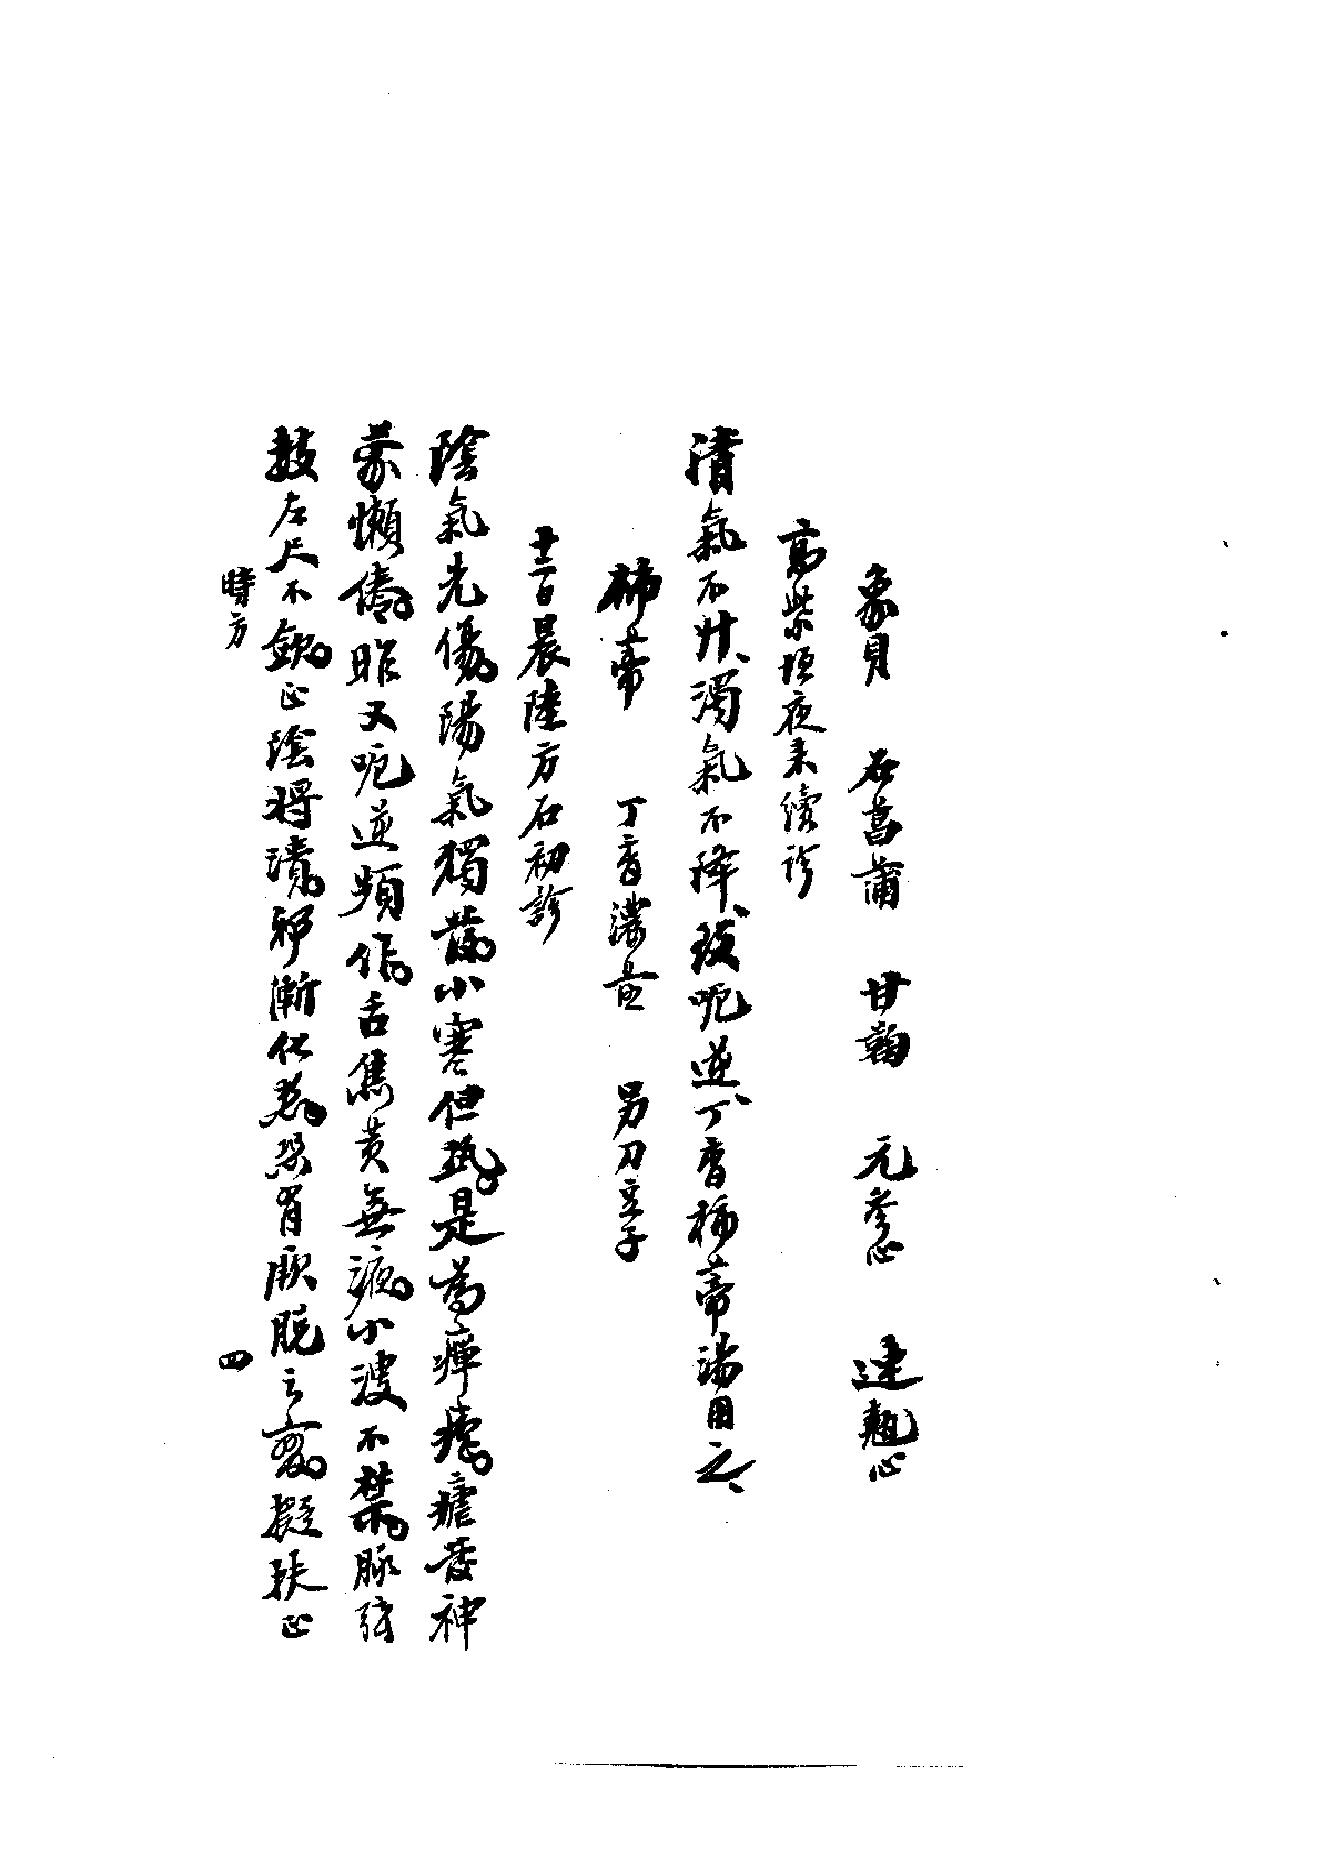 象貝 石菖蒲 甘菊 元參心 連翹心
高紫垣夜來續診
清氣不升、濁氣不降、致呃逆、丁香柿蒂湯用之、
柿蒂 丁香 另刀豆子
廿二日晨陸方石初診
陰氣先傷。陽氣獨發。小寒但熱。是為癉瘧。瘧發神
蒙懶倦。昨又呃逆頻作。舌焦黃無液。小溲不禁。脈弦
數左尺不斂。正陰將潰。邪漸化。肯厥脫之變。擬扶正
時方 四